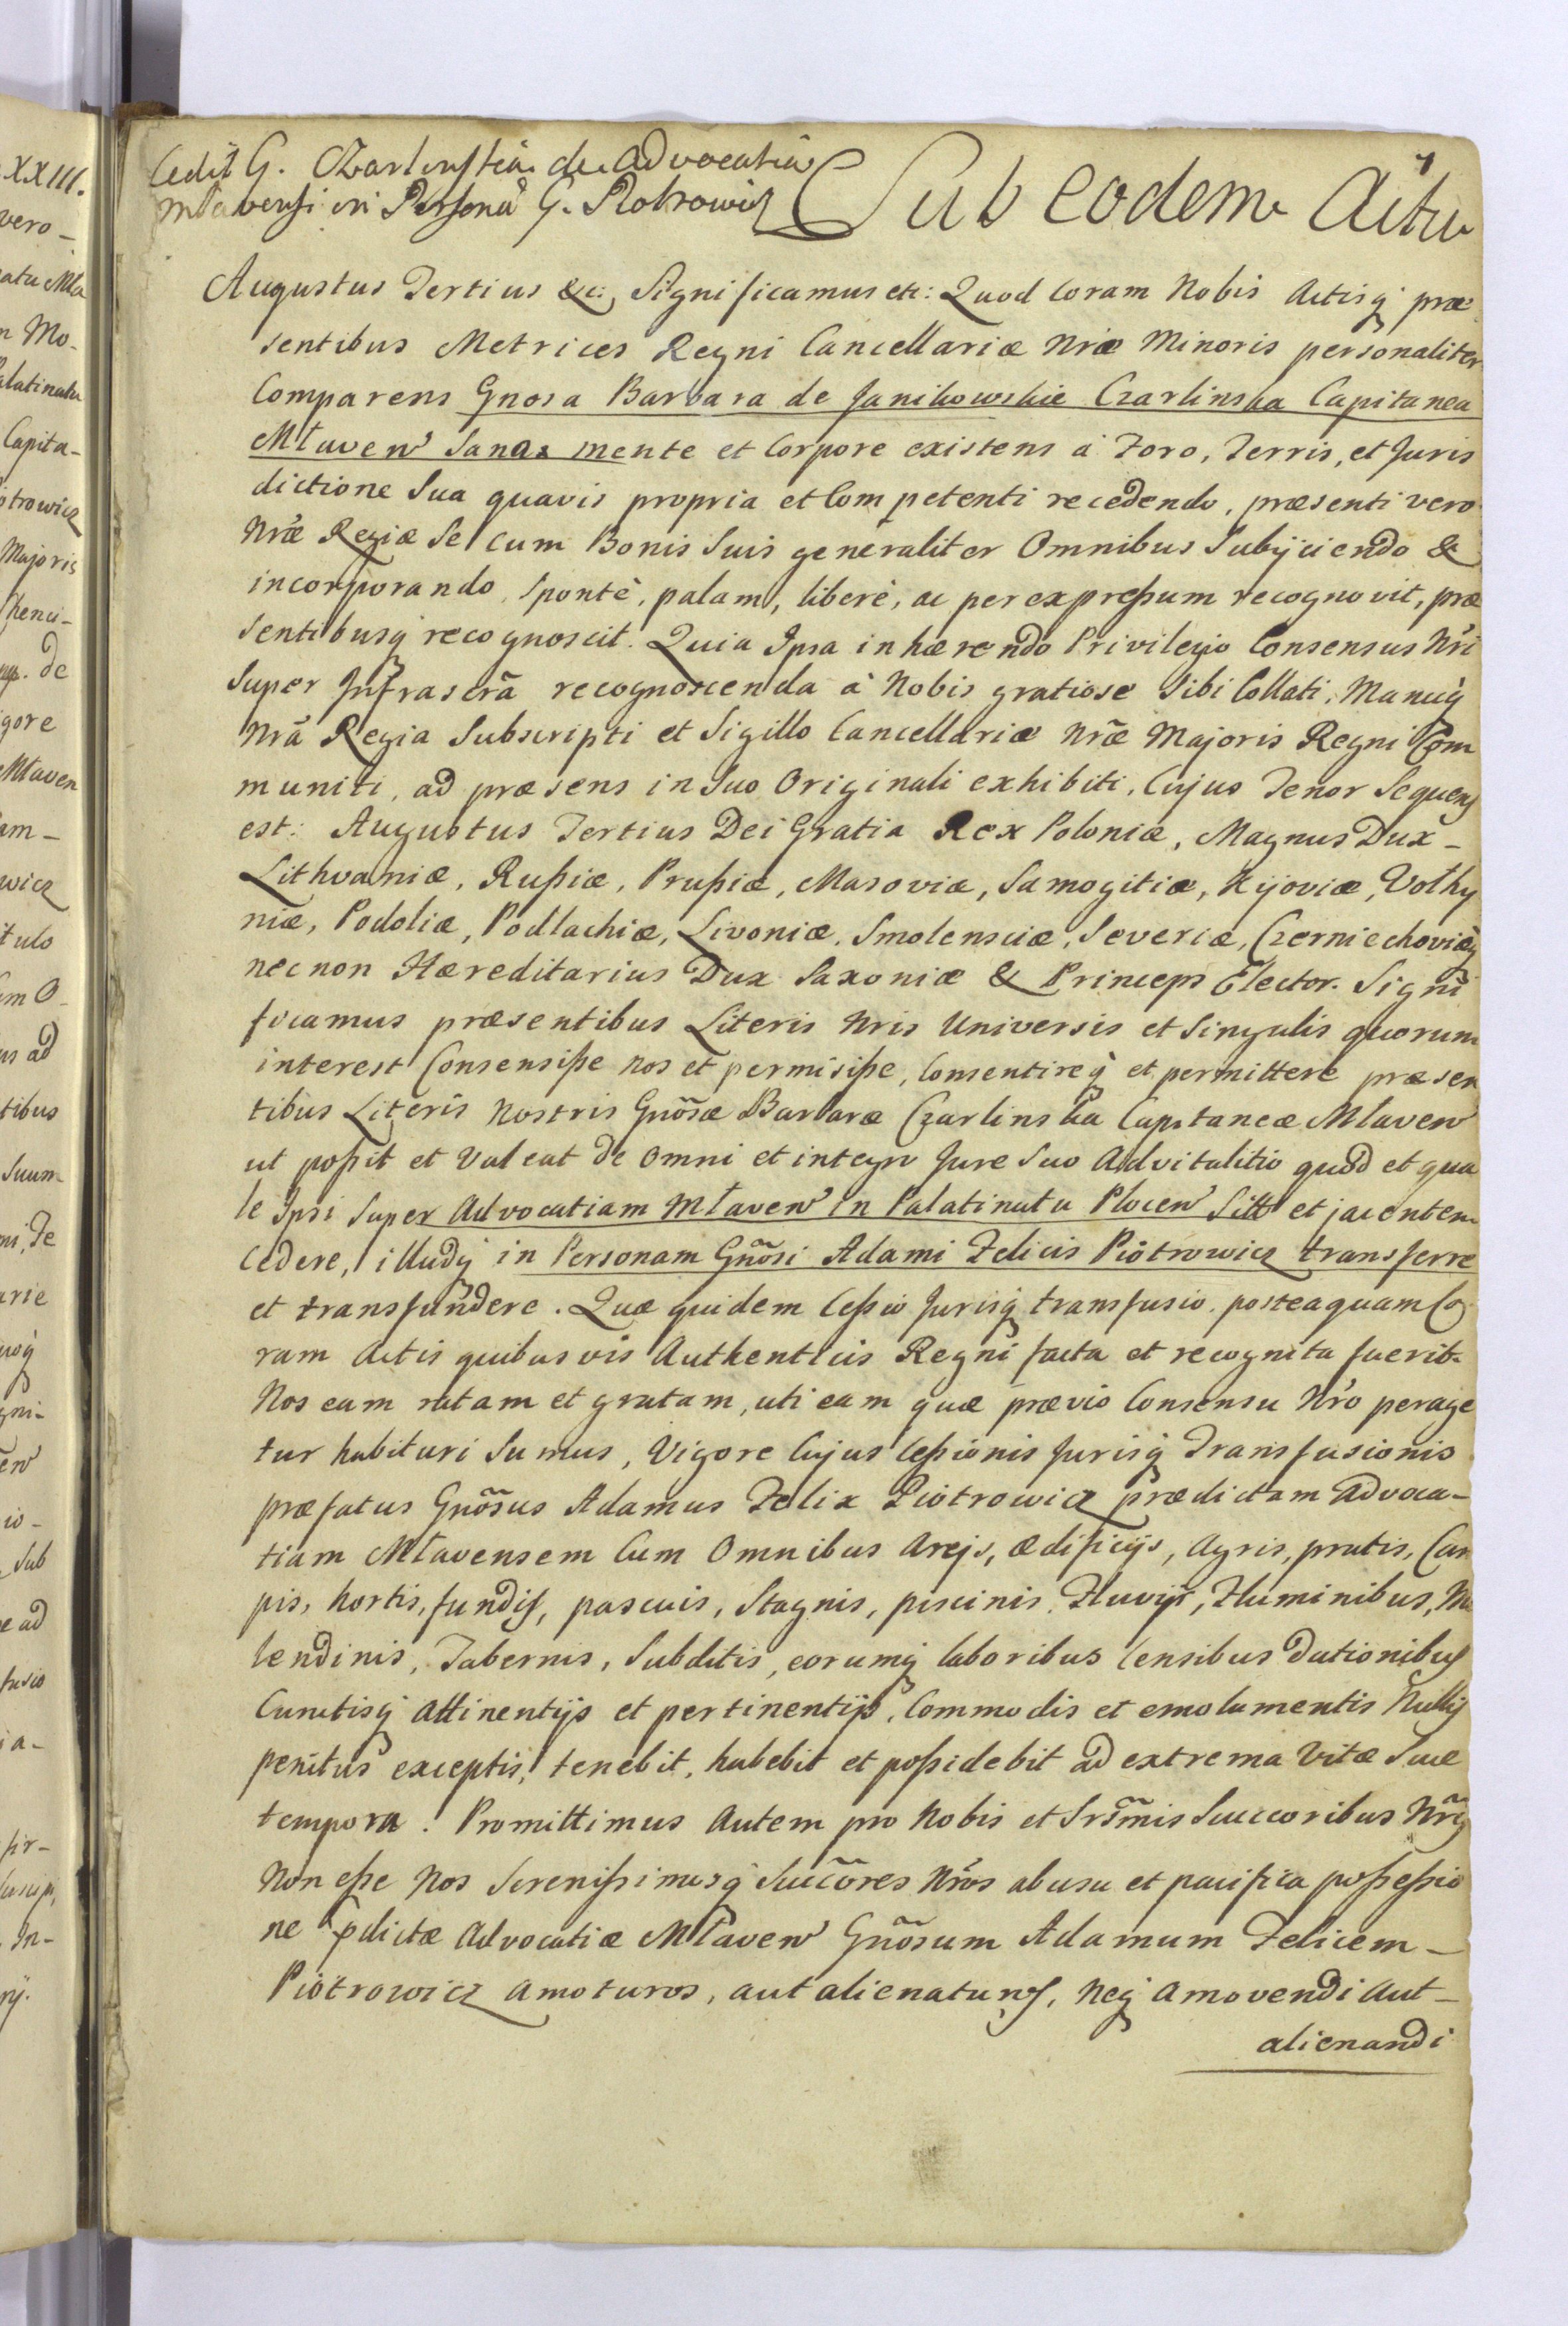 Cedit G. Czarlinska de Advocatia
Mlavensi in Personã G. Piotrowicz
Sub eodem Actu
Augustus Tertius &c: Significamus etc: Quod Coram Nobis Actisq́ præ
sentibus Metrices Regni Cancellariæ Nræ Minoris personaliter
Comparens Gnosa Barbara de Janikowskie Czarlinska Capitanea
Mławen̄ Sana mente et Corpore existens à Foro, Terris, et Juris
dictione Sua quavis propria et Competenti recedendo, præsenti vero
Nræ Regiæ Se cum Bonis Suis generaliter Omnibus Subijciendo &
incorporando, Spontè, palam, liberè, ac per expreßum recognovit, præ
sentibusq́ recognoscit. Quia Ipsa inhærendo Privilegio Consensus Nr̃i
Super Infrascr̃a recognoscenda à Nobis gratiose Sibi Collati, Manuq́
Nrã Regia Subscripti et Sigillo Cancellariæ Nræ̃ Majoris Regni Com
muniti, ad præsens in Suo Originali exhibiti, Cujus Tenor Sequens
est: Augustus Tertius Dei Gratia Rex Poloniæ, Magnus Dux –
Lithvaniæ, Rußiæ, Prußiæ, Masoviæ, Samogitiæ, Kijoviæ, Volhy
niæ, Podoliæ, Podlachiæ, Livoniæ, Smolensciæ, Severiæ, Czerniechoviæq́
necnon Hæreditarius Dux Saxoniæ & Princeps Elector. Signi
ficamus præsentibus Literis Nris Universis et Singulis quorum
interest Consensiße nos et permisiße, Consentireq́ et permittere præsen
tibus Literis Nostris Gñosæ Barbaræ Czarlinska Capitaneæ Mławen̄
ut poßit et Valeat de Omni et integro Jure Suo Advitalitio quod et qua
le Ipsi Super Advocatiam Mławen̄ in Palatinatu Plocen̄ Sitt et jacentem
Cedere, illudq́ in Personam Gñosi Adami Felicis Piotrowicz transferre
et transfundere. Quæ quidem Ceßio Jurisq́ transfusio posteaquam Co
ram Actis quibusvis Authenticis Regni facta et recognita fuerit.
Nos eam ratam et gratam, uti eam quæ prævio Consensu Nr̃o perage
tur habituri Sumus, Vigore Cujus Ceßionis Jurisq́ Transfusionis
præfatus Gñosus Adamus Felix Piotrowicz prædictam Advoca–
tiam Mławensem Cum Omnibus Arejs, ædificijs, Agris, pratis, Cam
pis, hortis, fundis, pascuis, Stagnis, piscinis, Fluvijs, Fluminibus, Mo
lendinis, Tabernis, Subditis, eorumq́ laboribus Censibus Dationibus
Cunctisq́ Attinentijs et pertinentijs, Commodis et emolumentis Nullis
penitus exceptis, tenebit, habebit et poßidebit ad extrema Vitæ Suæ
tempora. Promittimus Autem pro Nobis et Srs̃mis Succoribus Nr̃is
Non eße Nos Serenißimosq́ Succ̃ores Nr̃os ab usu et pacifica poßeßio
ne p̃dictæ Advocatiæ Mławen̄ Gñosum Adamum Felicem –
Piotrowicz Amoturos, aut alienaturos, Neq́ Amovendi Aut –
alienandi